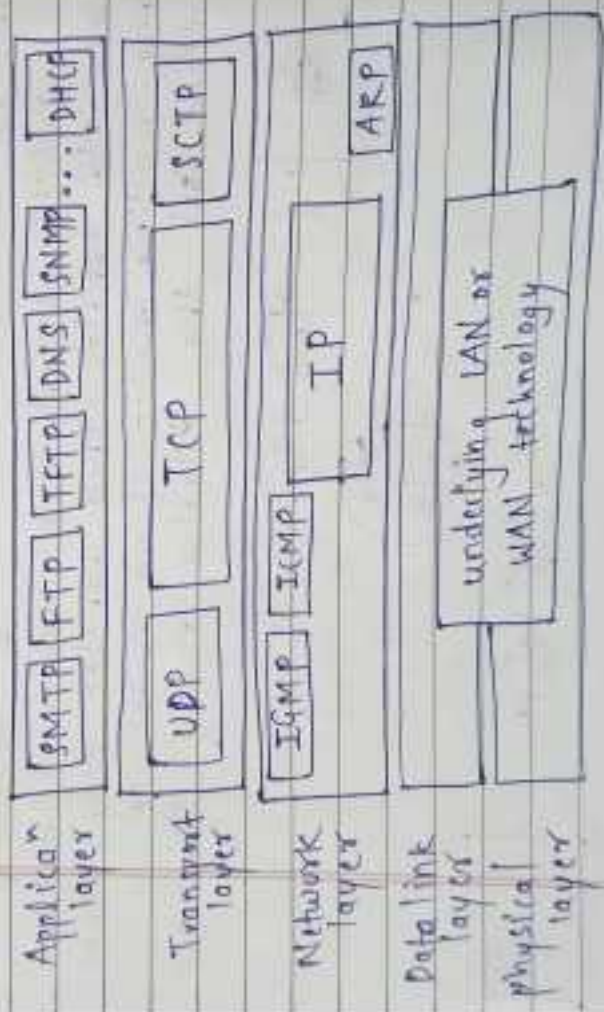 Applicaⁿ
layer
SMTP FTP TFTP DNS SNMP ... DHCP
Transport
layer
UDP TCP SCTP
Network
layer
IGMP ICMP IP ARP
Data link
layer
physical
layer
underlying LAN or
WAN technology